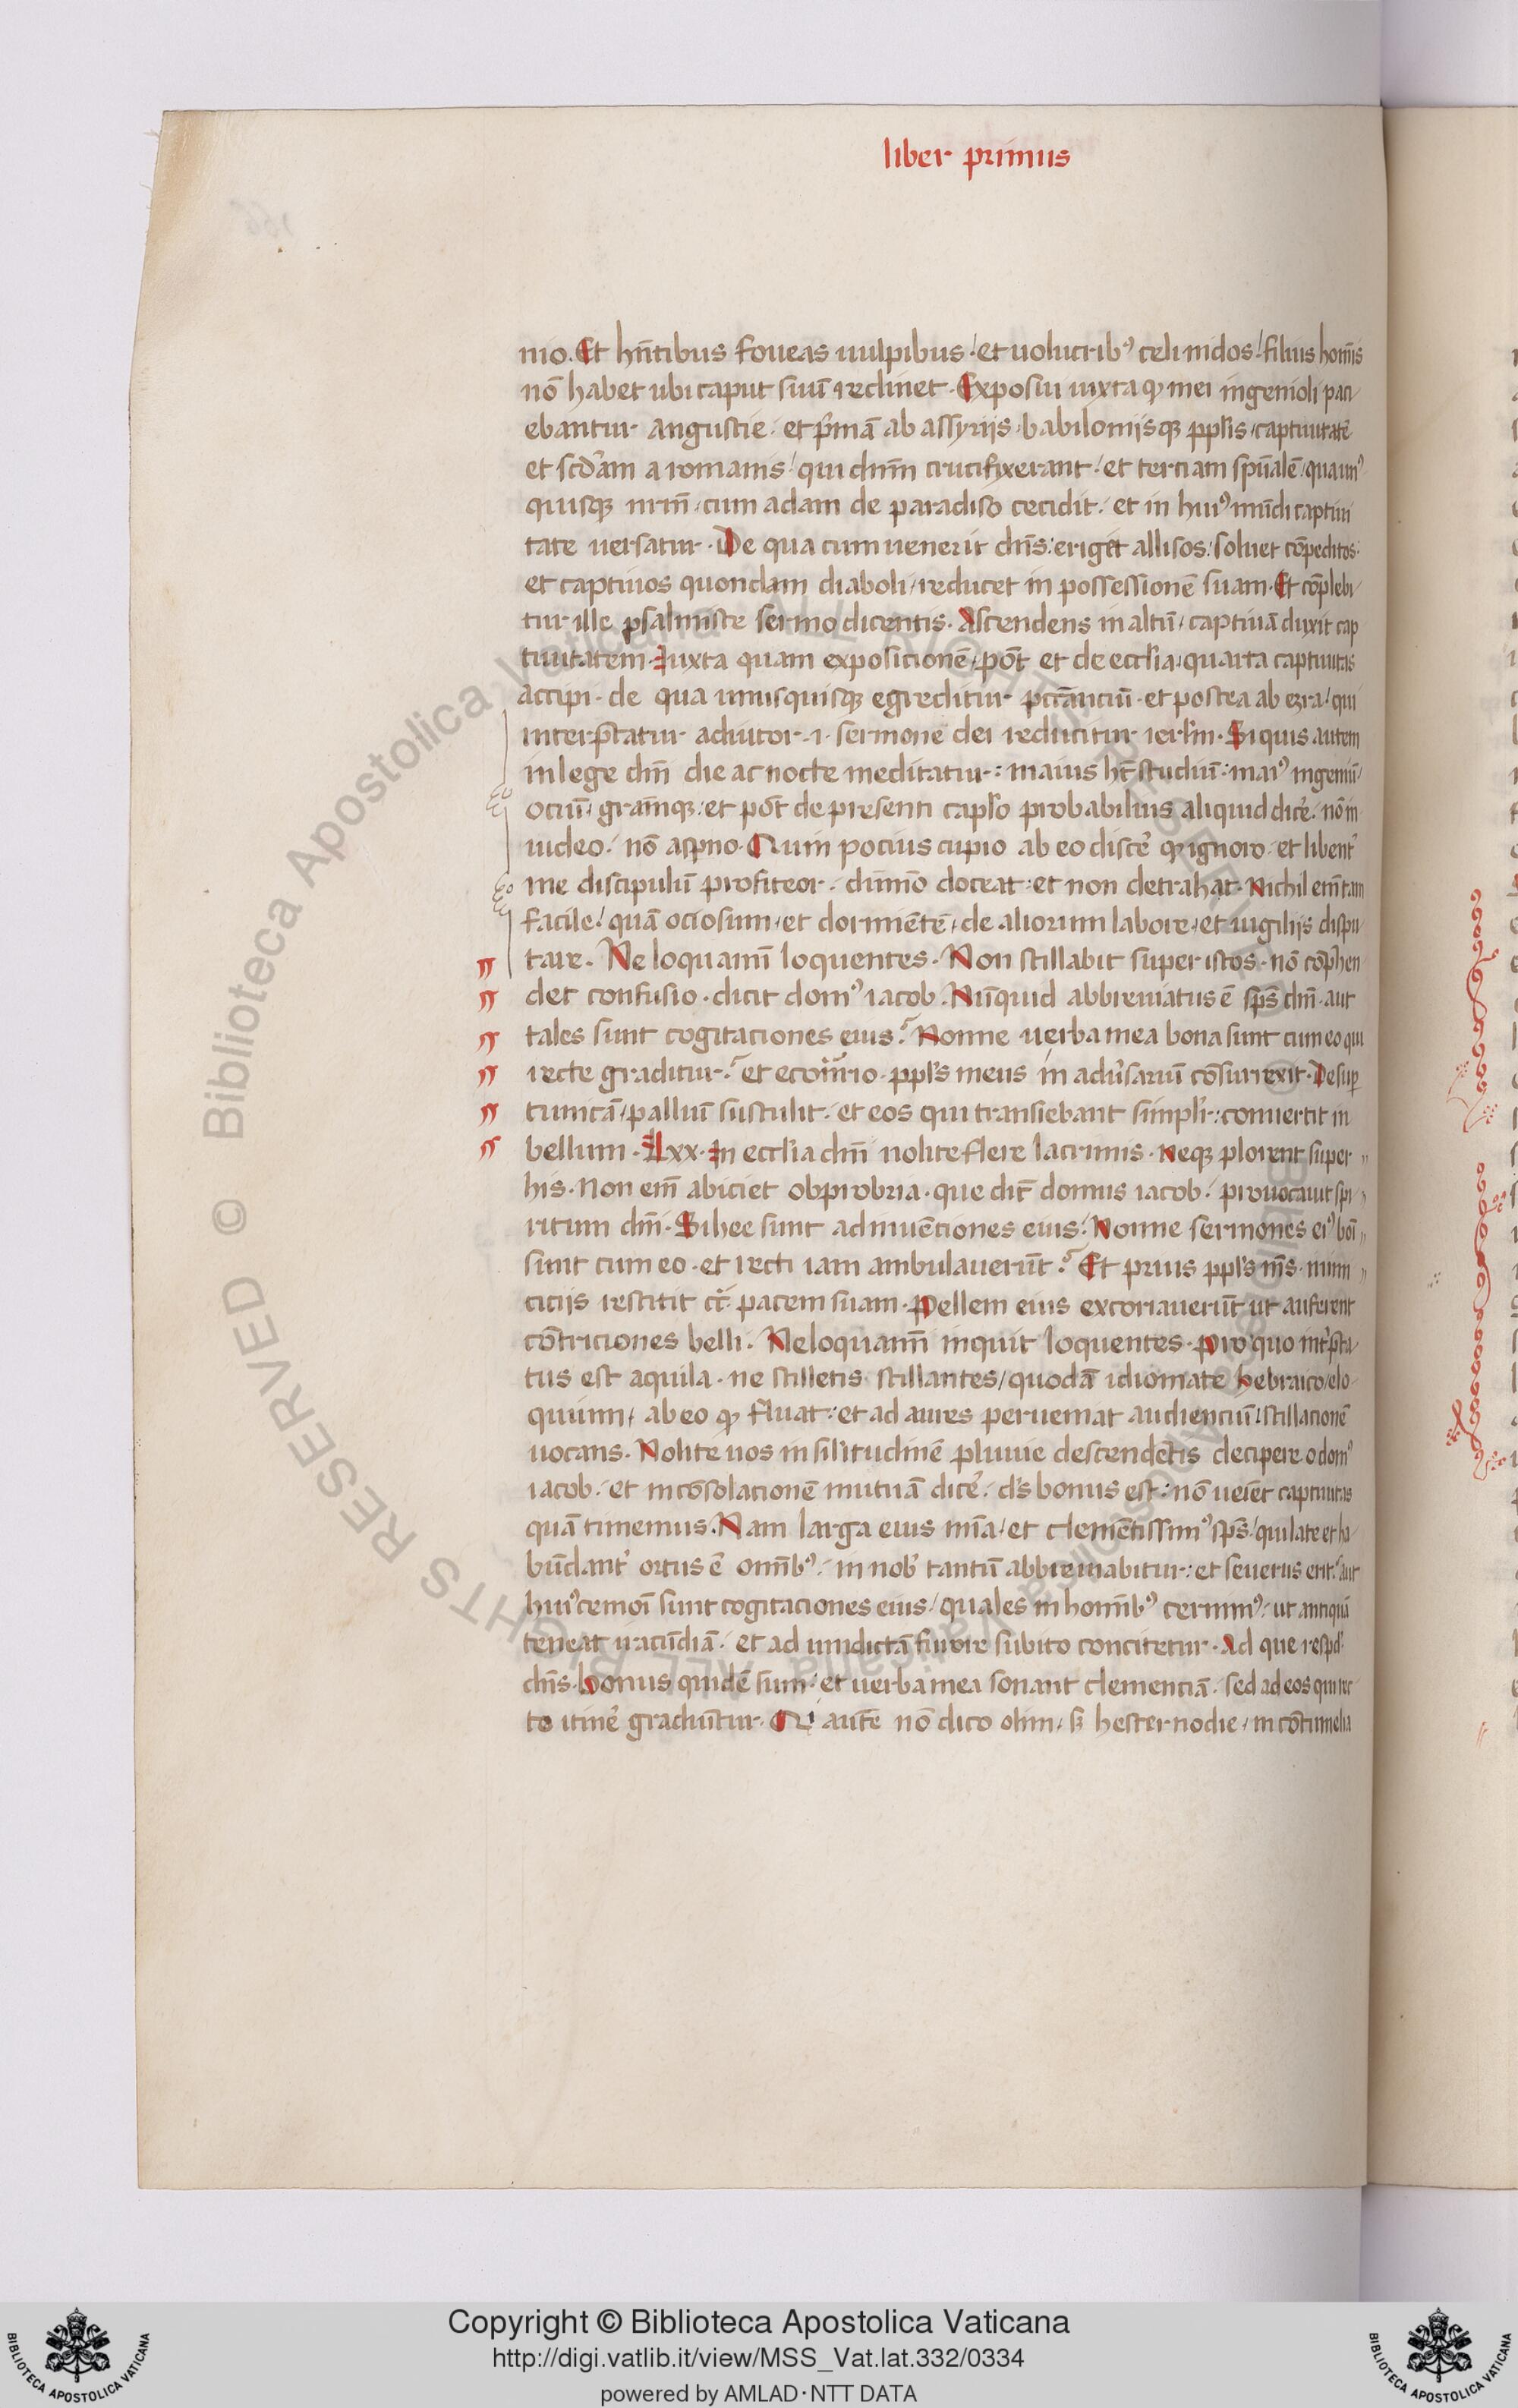 liber primus
nio. Et hn̄tibus foueas uulpibus / et uolucribꝰ celi nidos / filius hoīs
nō habet ubi caput suū reclinet. Exposui iuxta qd mei ingenioli paci
ebantur angustie / et p̄mā ab assyrijs babilonijsqꝫ ppl̄is captiuitatē
et scd̄am a romanis / qui dn̄m crucifixerant / et terciam spūalē / qua unꝰ
quisqꝫ nr̄m cum adam de paradiso cecidit / et in huiꝰ mūdi captiui
tate uersatur. De qua cum uenerit dn̄s: eriget allisos: soluet cōpeditos:
et captiuos quondam diaboli / reducet in possessionē suam. Et cōplebi
tur ille psalmiste sermo dicentis. Ascendens in altū / captiuā duxit cap
tiuitatem. Iuxta quam exposicionē / pōt et de eccl̄ia quarta captiuitas
accipi. de qua unusquisqꝫ egreditur pctānciū. et postea ab ezra / qui
interp̄tatur adiutor .i. sermone dei reducitur ierl̄m. Si quis autem
in lege dn̄i die ac nocte meditatur: maius ht̄ studiū: maiꝰ ingeniū
ociū / grām̄qꝫ: et pōt de presenti capl̄o probabilius aliquid dicē. nō in
uideo. nō asp̄no. Quin pocius cupio ab eo discē qd ignoro. et libent̄
me discipulū profiteor. dūmō doceat: et non detrahat. Nichil em̄ tam
facile / quā ociosum et dormiētē de aliorum labore et uigilijs dispu
tare. Ne loquamī loquentes. Non stillabit super istos. nō cōp̄hen
det confusio. dicit domꝰ iacob. Nūquid abbreuiatus ē sps̄ dn̄i. aut
tales sunt cogitaciones eius? Nonne uerba mea bona sunt cum eo qui
recte graditur? et econtrario. ppl̄s meus in adūsariū cōsurrexit. Desup
tunicā / palliū sustulit. et eos qui transiebant simpl̄r: conuertit in
bellum. Lxx. In eccl̄ia dn̄i nolite flere lacrimis. Neqꝫ plorent super
his. Non em̄ abiciet obprobria. que dic̄ domus iacob. prouocauit spi
ritum dn̄i. Si hec sunt adinuēciones eius. Nonne sermones eiꝰ boī
sunt cum eo. et recti iam ambulauerūt? Et prius ppl̄s m̄s. inimi
ciciis restitit cc̄. pacem suam. Pellem eius excoriauerūt ut auferent
cōtriciones belli. Ne loquamī inquit loquentes. Pro quo int̄p̄ta
tus est aquila. ne stilletis stillantes / quodā idiomate hebraico / elo
quium / ab eo qd fluat: et ad aures perueniat audienciū stillacionē
uocans. Nolite uos in sil̄itudinē pluuie descendētis decipere o domꝰ
iacob. et in cōsolacionē mutuā dicē. ds̄ bonus est: nō ueiēt captiuitas
quā timemus. Nam larga eius mīa / et clemētissimꝰ sps̄ / qui late et ha
būdant̄ ortus ē omībꝰ. in nob̄ tantū abbreuiabitur: et seuerus erit? aut
huiꝰcemoī sunt cogitaciones eius / quales in homībꝰ cernimꝰ. ut antiquā
teneat iracūdiā. et ad uindictā furore subito concitetur. Ad que respd̄
dn̄s. bonus quidē sum. et uerba mea sonant clemenciā. sed ad eos qui rec
to itinē gradiūtur. Qi autē nō dico olim / sꝫ hesterno die / in cōtumelia
Copyright © Biblioteca Apostolica Vaticana
http://digi.vatlib.it/view/MSS_Vat.lat.332/0334
powered by AMLAD·NTT DATA
Biblioteca Apostolica Vaticana ALL RIGHTS RESERVED ©
BIBLIOTECA APOSTOLICA VATICANA
BIBLIOTECA APOSTOLICA VATICANA